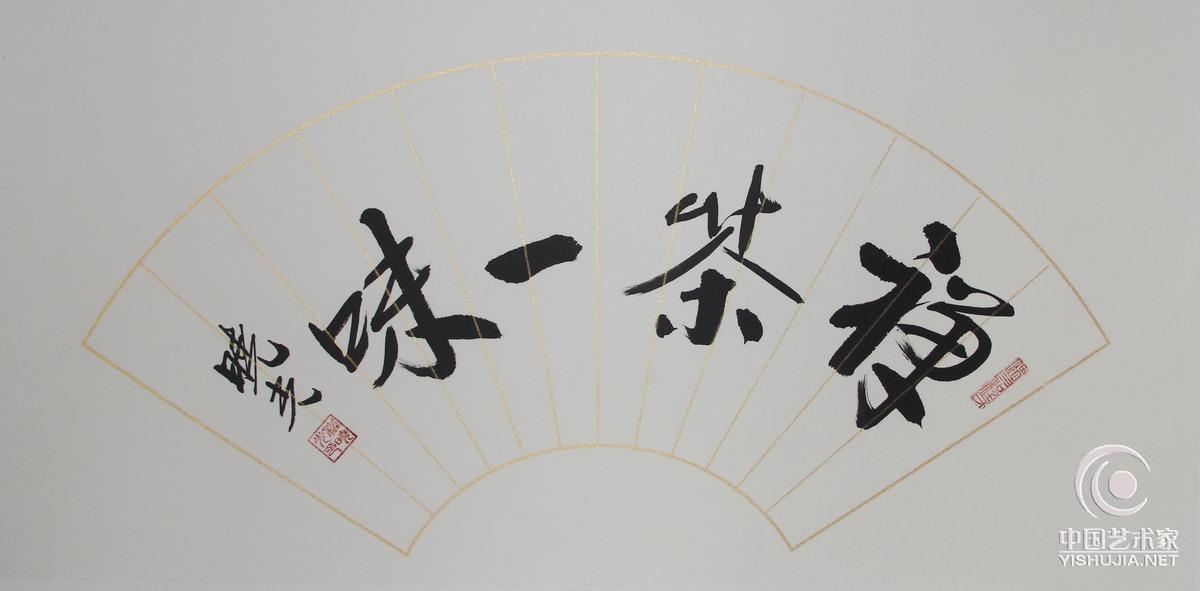 禅茶一味
中国艺术家
YISHUJIA.NET